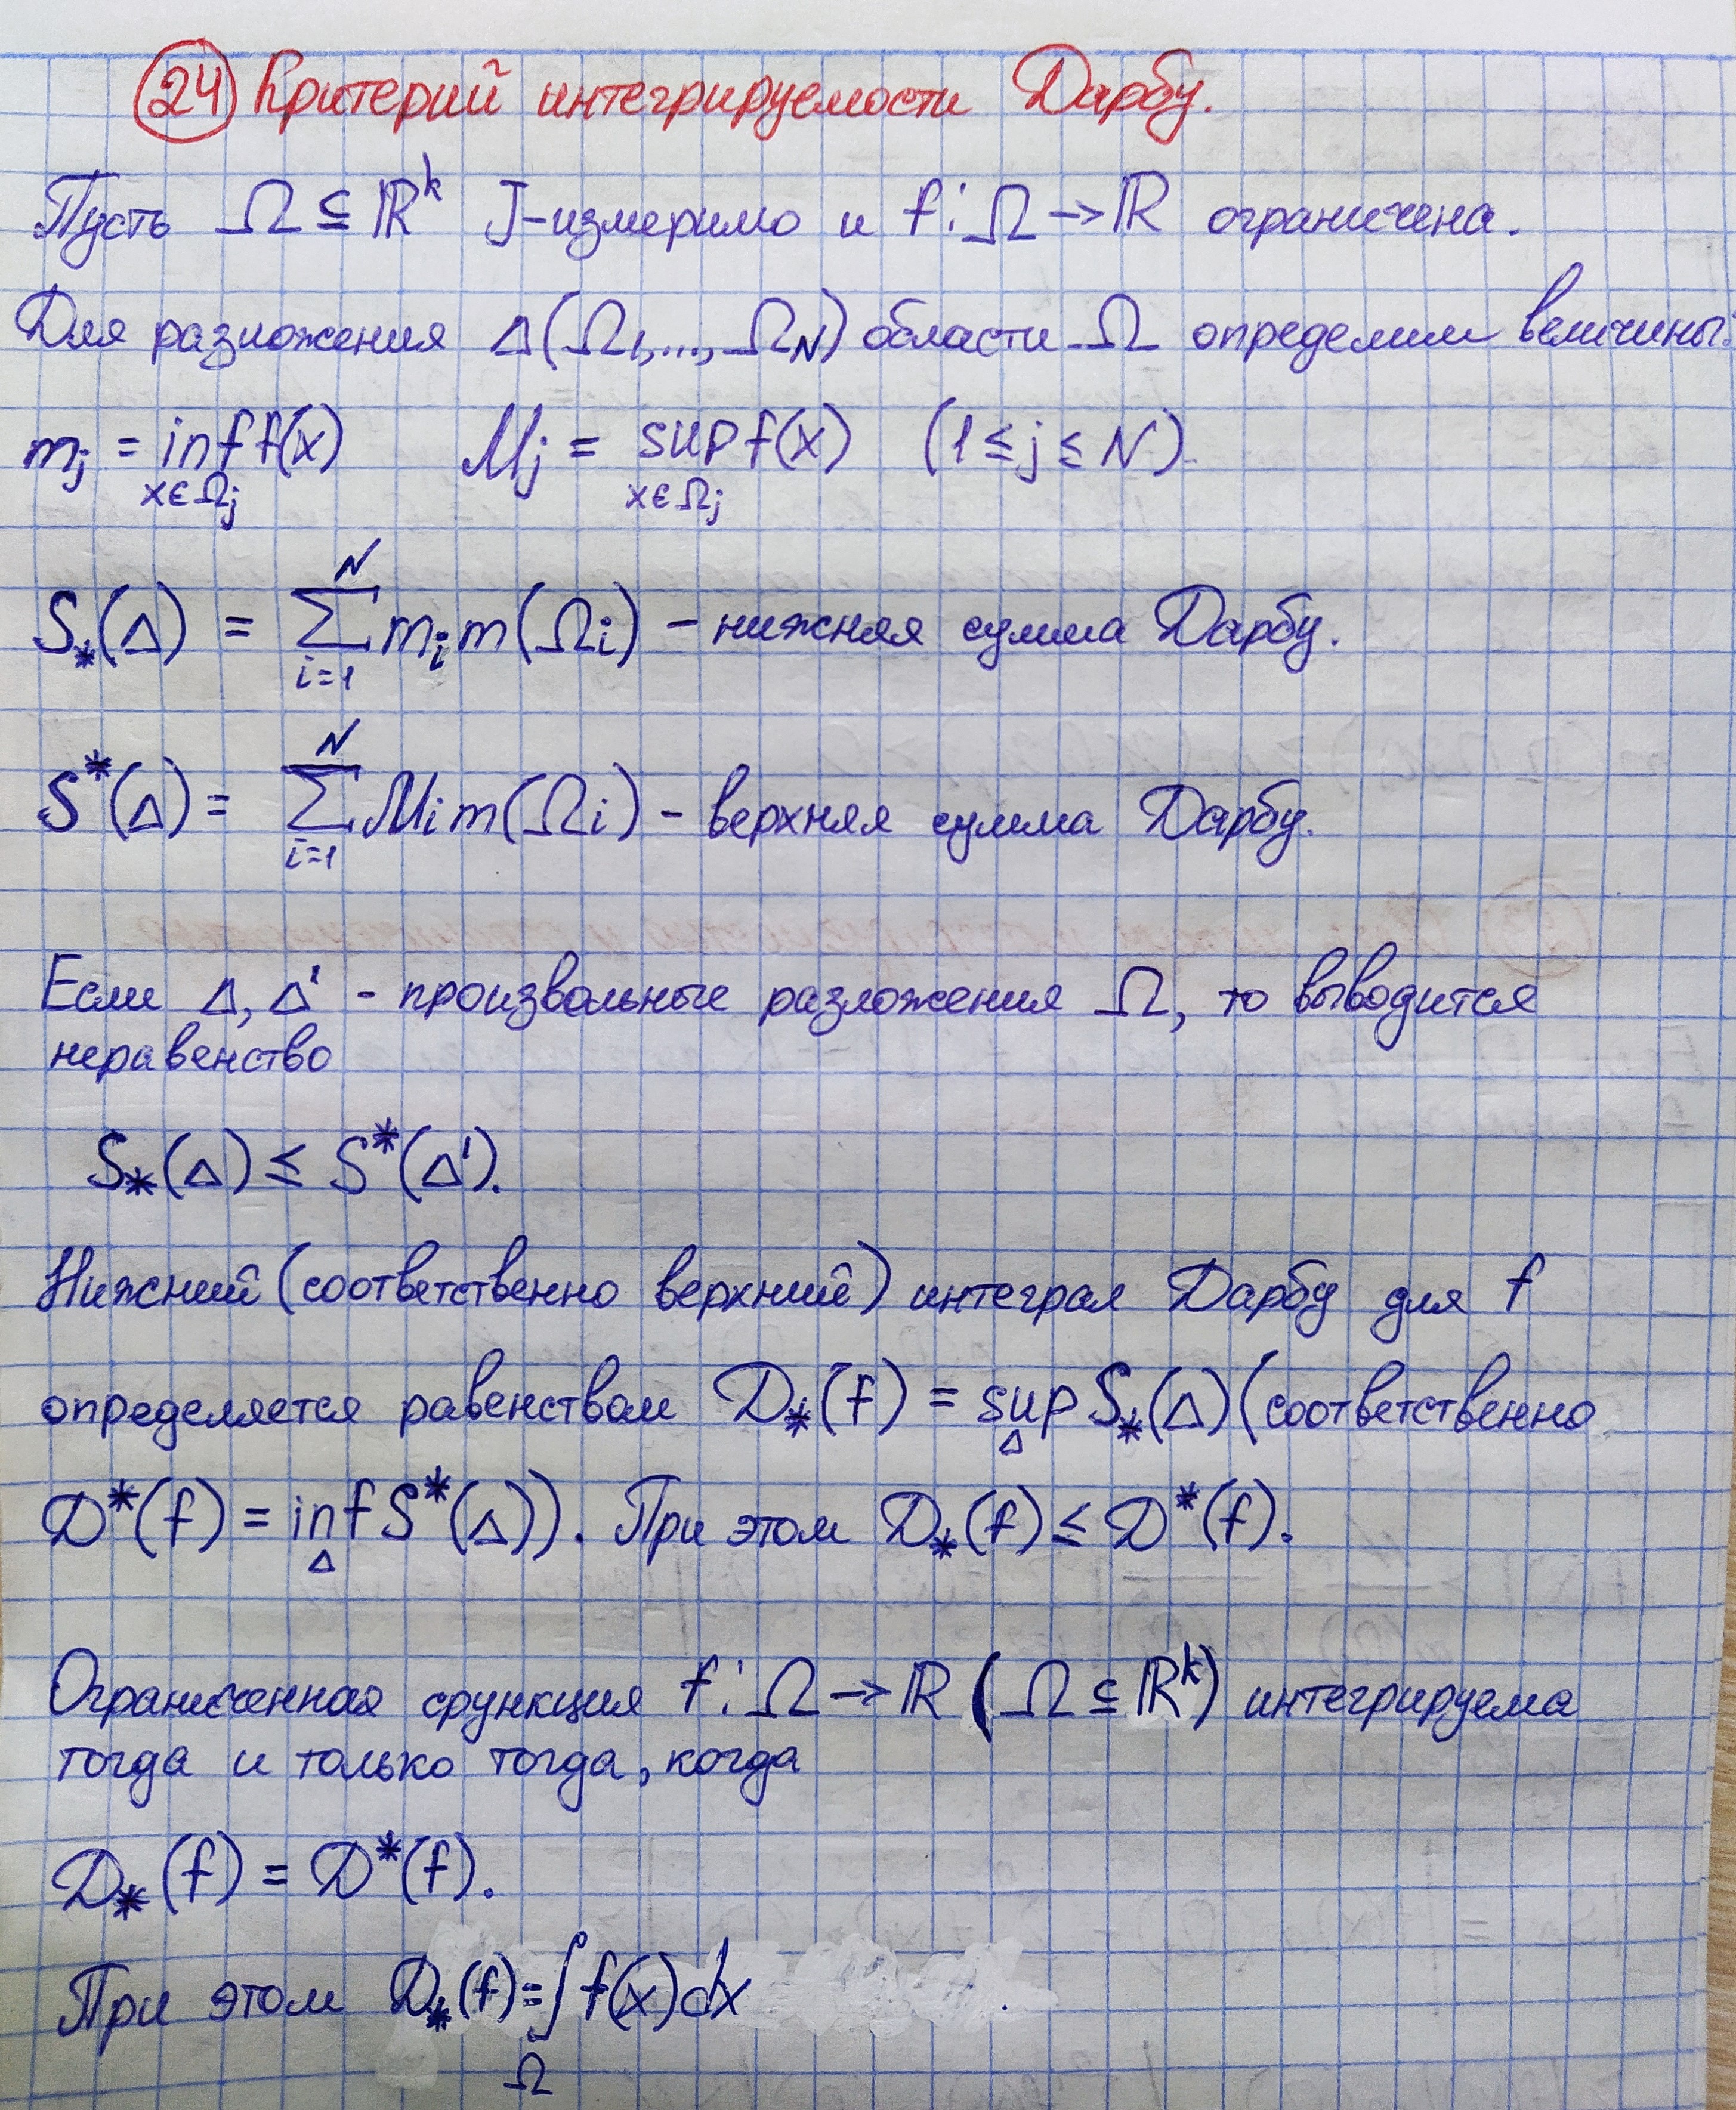 24 Критерий интегрируемости Дарбу.
Пусть Ω ⊆ ℝᵏ J-измеримо и f: Ω → ℝ ограничена.
Для разложения Δ(Ω₁,..., Ω_N) области Ω определим величины:
m_j = inf f(x) M_j = sup f(x) (1 ≤ j ≤ N).
x∈Ω_j x∈Ω_j
S_*(Δ) = ∑_{i=1}^{N} m_i m(Ω_i) – нижняя сумма Дарбу.
S^*(Δ) = ∑_{i=1}^{N} M_i m(Ω_i) – верхняя сумма Дарбу.
Если Δ, Δ' - произвольные разложения Ω, то выводится
неравенство
S_*(Δ) ≤ S^*(Δ').
Нижний (соответственно верхний) интеграл Дарбу для f
определяется равенством D_*(f) = sup_Δ S_*(Δ) (соответственно
D^*(f) = inf_Δ S^*(Δ)). При этом D_*(f) ≤ D^*(f).
Ограниченная функция f: Ω → ℝ (Ω ⊆ ℝᵏ) интегрируема
тогда и только тогда, когда
D_*(f) = D^*(f).
При этом D_*(f) = ∫_Ω f(x)dx .